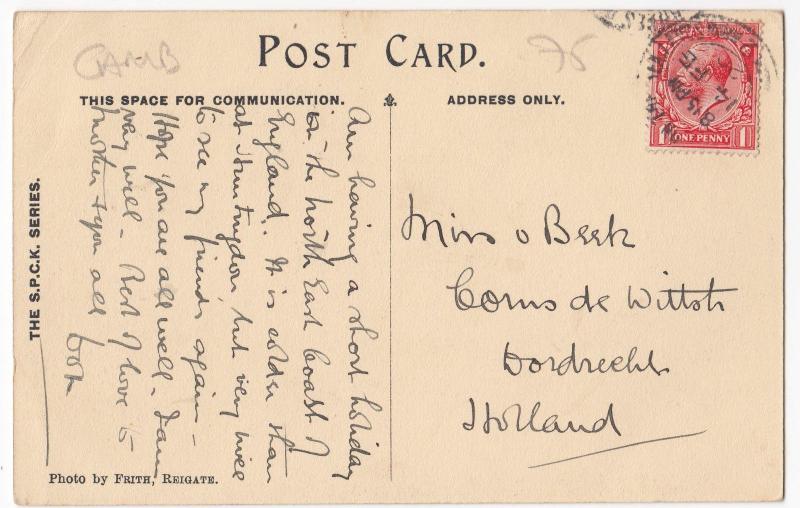 CAMB
75
POST CARD.
THIS SPACE FOR COMMUNICATION.
ADDRESS ONLY.
THE S.P.C.K. SERIES.
Am having a short holiday
in the North East Coast of
England. It is colder than
at Huntingdon, but very nice
to see my friends again –
Hope you are all well – I am
very well – Best of love to
mother & you all
Miss v Beek
Corns de Wittstr
Dordrecht
Holland
ONE PENNY
8 15 PM
Photo by FRITH, REIGATE.